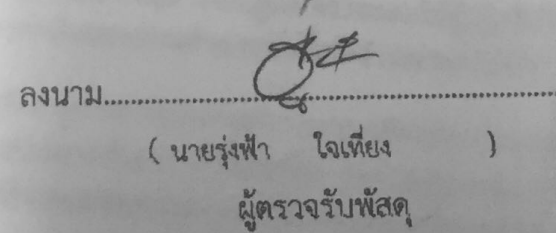 ลงนาม
( นายรุ่งฟ้า ใจเที่ยง )
ผู้ตรวจรับพัสดุ